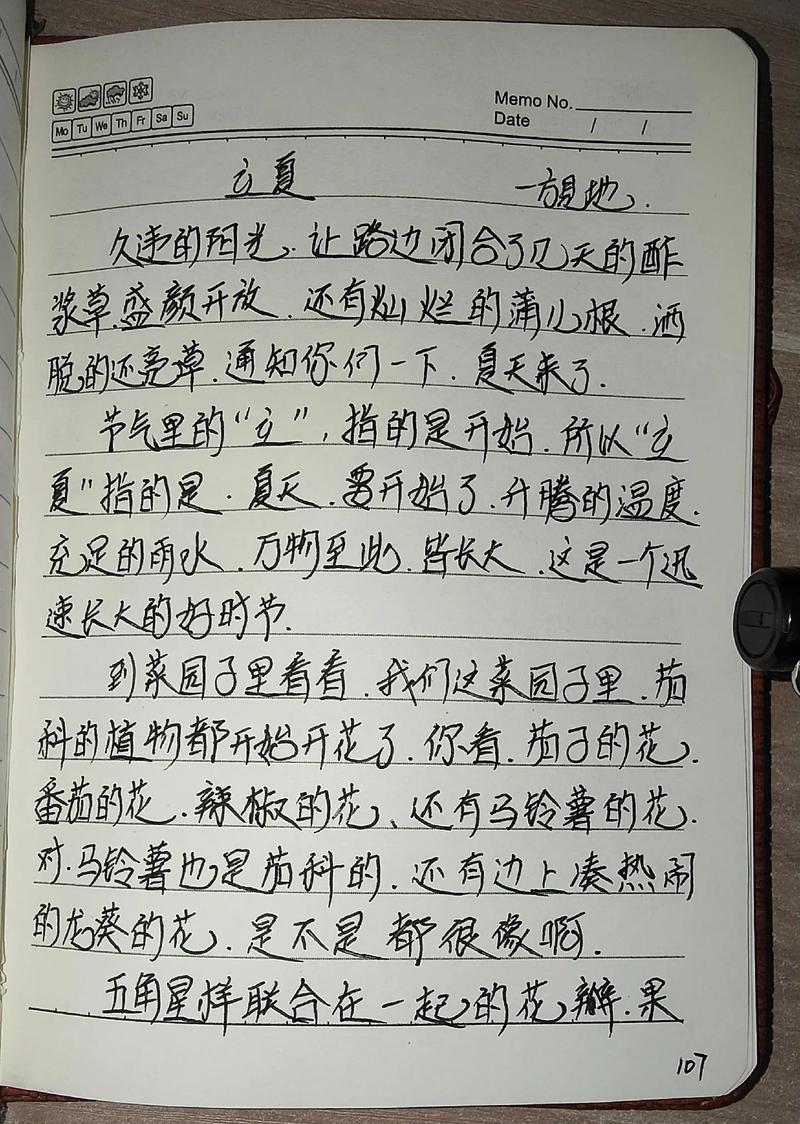 Memo No.
Mo Tu We Th Fr Sa Su
Date / /
立夏 一方見地.
久违的阳光.让路边闭合了几天的酢
浆草.盛颜开放.还有灿烂的蒲儿根.洒
脱的还亮草.通知你们一下.夏天来了.
节气里的“立”,指的是开始.所以“立
夏”指的是.夏天.要开始了.升腾的温度.
充足的雨水.万物至此.皆长大.这是一个迅
速长大的好时节.
到菜园子里看看.我们这菜园子里.茄
科的植物都开始开花了.你看.茄子的花.
番茄的花.辣椒的花、还有马铃薯的花.
对.马铃薯也是茄科的.还有边上凑热闹
的龙葵的花.是不是都很像啊.
五角星样联合在一起的花瓣.果
107